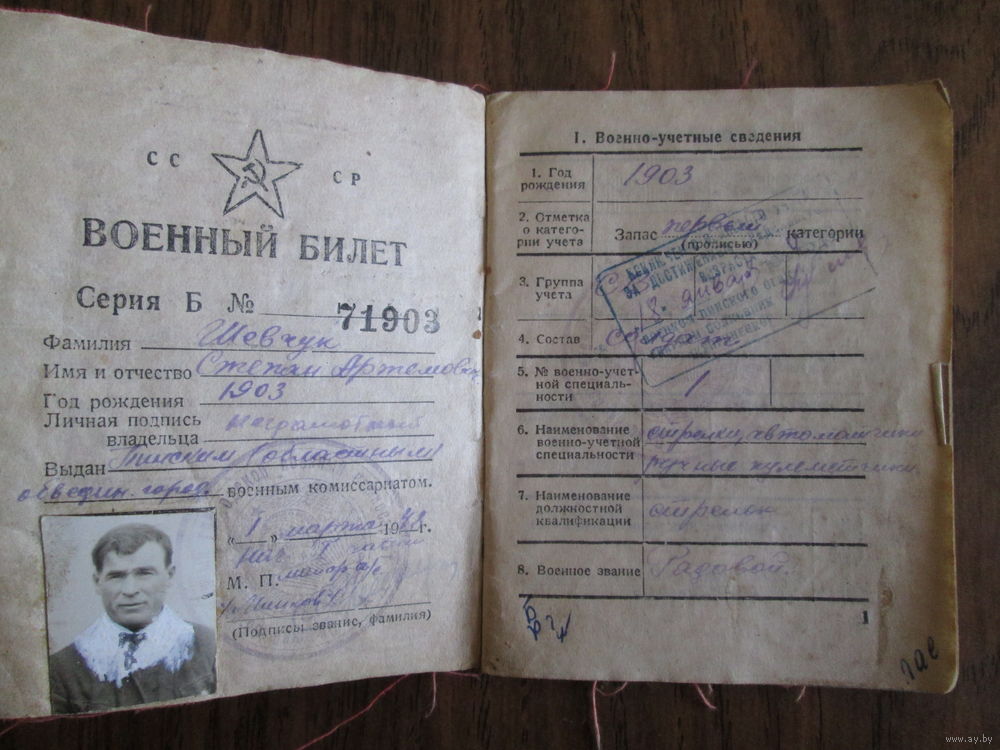 СС СР
ВОЕННЫЙ БИЛЕТ
Серия Б № 71903
Фамилия Шевчук
Имя и отчество Степан Артемович
Год рождения 1903
Личная подпись неграмотный
владельца
Выдан Пинским областным
об'един. город. военным комиссариатом.
«1» марта 1948 г.
Нач. 1 части
М. П. майор а/с
(Подписы звание, фамилия)
I. Военно-учетные сведения
1. Год рождения
1903
2. Отметка о катего-
рии учета
Запас первой категории
(прописью)
3. Группа
учета
18 января
4. Состав солдат
5. № военно-учет-
ной специаль-
ности
1
6. Наименование
военно-учетной
специальности
стрелки, автоматчики
ручные пулеметчики
7. Наименование
должностной
квалификации
стрелок
8. Военное звание Рядовой.
1
www.ay.by